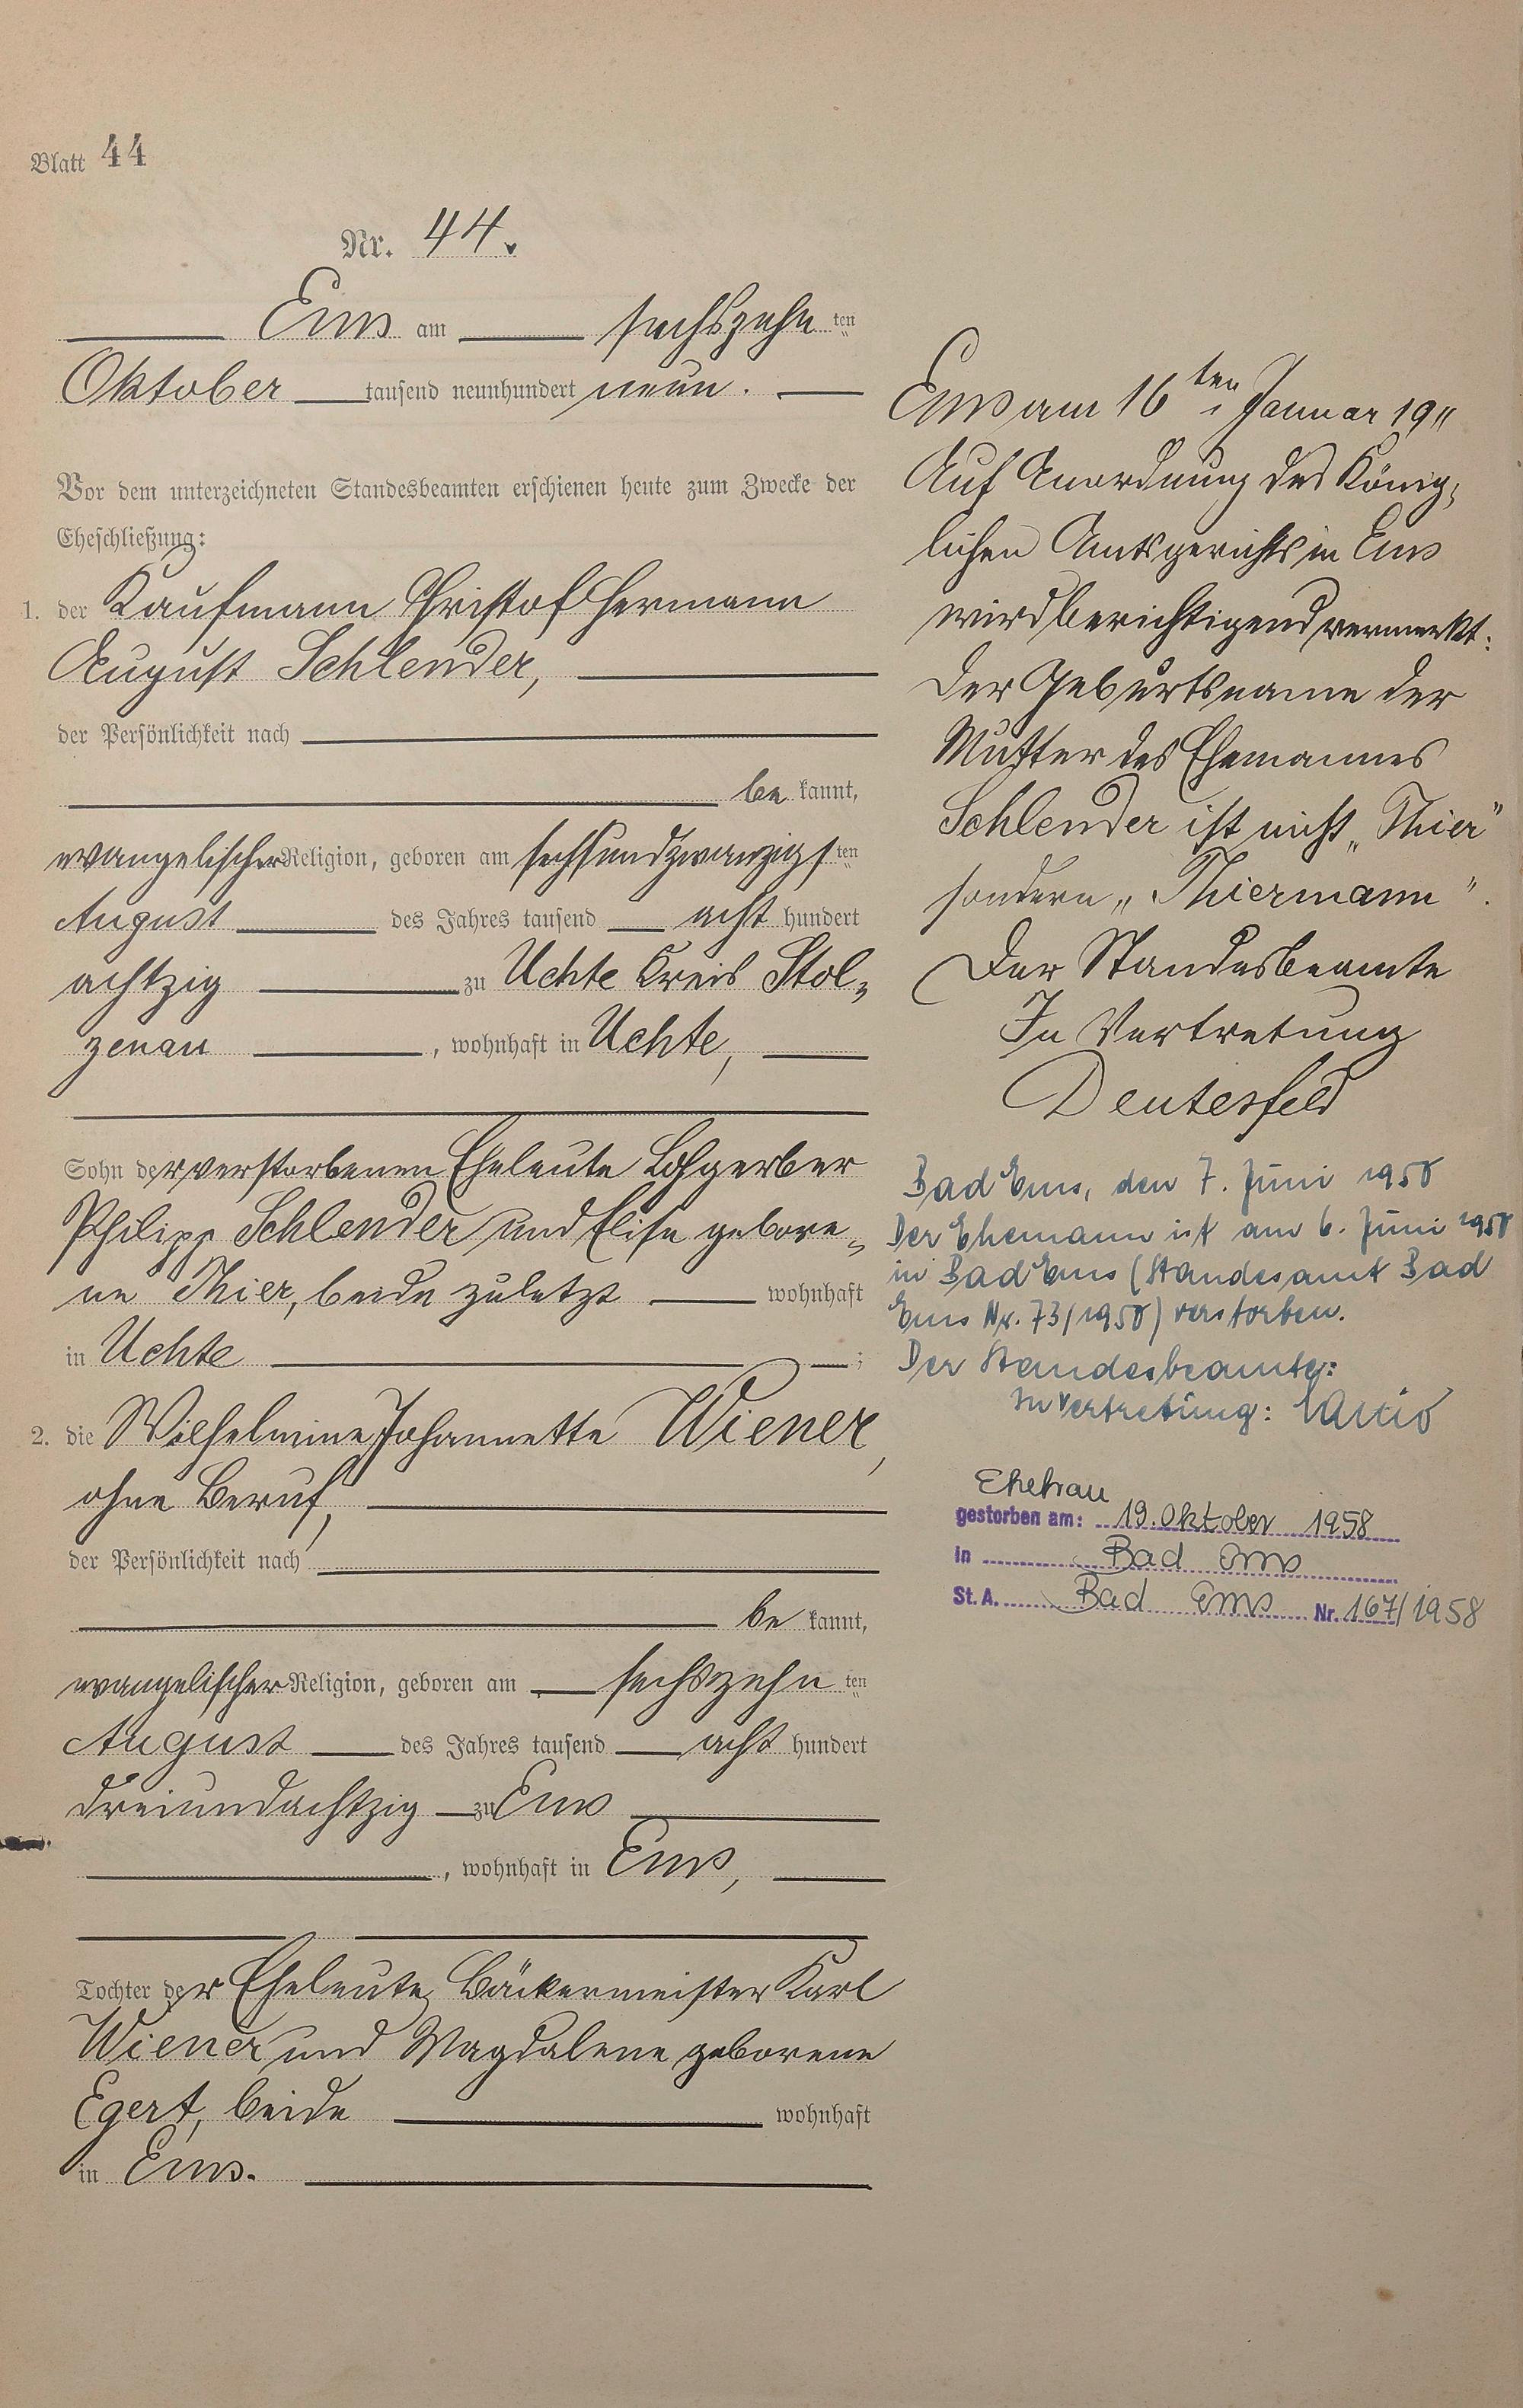 Blatt 44
Nr. 44.
Ems am sechszehn ten
Oktober tausend neunhundert neun.
Vor dem unterzeichneten Standesbeamten erschienen heute zum Zwecke der
Eheschließung:
1. der Kaufmann Christof Hermann
August Schlender,
der Persönlichkeit nach
be kannt,
evangelischer Religion, geboren am sechsundzwanzigs ten
August des Jahres tausend acht hundert
achtzig zu Uchte Kreis Stol-
zenau, wohnhaft in Uchte,
Sohn der verstorbenen Eheleute Lohgerber
Philipp Schlender und Elise gebore-
ne Thier, beide zuletzt wohnhaft
in Uchte ;
2. die Wilhelmine Johannette Wiener,
ohne Beruf,
der Persönlichkeit nach
be kannt,
evangelischer Religion, geboren am sechszehn ten
August des Jahres tausend acht hundert
dreiundachtzig zu Ems
, wohnhaft in Ems,
Tochter der Eheleute Bäckermeister Karl
Wiener und Magdalene geborene
Egert, beide wohnhaft
in Ems.
Ems am 16ten Januar 1911
Auf Anordnung des König-
lichen Amtsgerichts in Ems
wird berichtigend vermerkt:
Der Geburtsname der
Mutter des Ehemannes
Schlender ist nicht „Thier"
sondern „Thiermann".
Der Standesbeamte
In Vertretung
Deutesfeld
Bad Ems, den 7. Juni 1958
Der Ehemann ist am 6. Juni 1958
in Bad Ems (Standesamt Bad
Ems Nr. 73/1958) verstorben.
Der Standesbeamte:
In Vertretung:
Ehefrau
gestorben am: 19. Oktober 1958
in Bad Ems
St. A. Bad Ems Nr. 167/1958